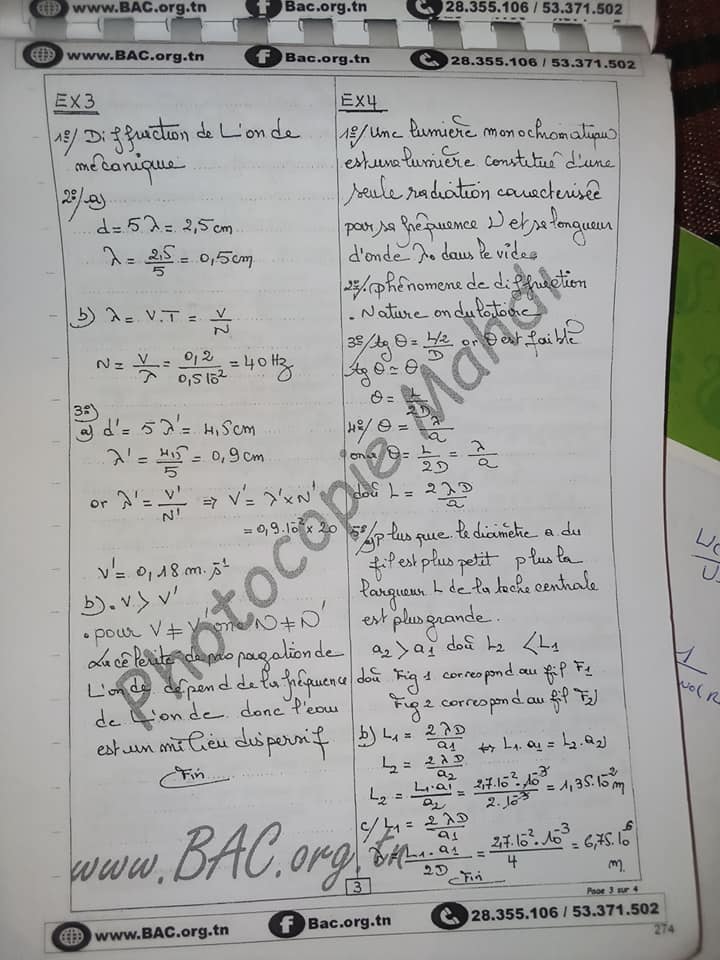 www.BAC.org.tn Bac.org.tn 28.355.106 / 53.371.502
www.BAC.org.tn Bac.org.tn 28.355.106 / 53.371.502
EX3
1º/ Diffraction de L'onde
mécanique
2º/a)
d = 5λ = 2,5 cm
λ = 2,5/5 = 0,5 cm
b) λ = V.T = V/N
N = V/λ = 0,2/0,5 10⁻² = 40 Hz
3º/
a) d' = 5λ' = 4,5 cm
λ' = 4,5/5 = 0,9 cm
or λ' = V'/N' ⇒ V' = λ' × N'
= 0,9.10⁻² × 20
V' = 0,18 m.s⁻¹
b). V > V'
. pour V ≠ V' on a N ≠ N'
La célérité de propagation de
L'onde dépend de la fréquence
de L'onde donc l'eau
est un milieu dispersif
Fin
EX4
1º/ Une lumière monochromatique
est une lumière constitué d'une
seule radiation caracterisée
par sa fréquence ν et se longueur
d'onde λ₀ dans le vide
2º/. phénomene de diffraction
. Nature ondulatoire
3º/ tg θ = L/2/D or θ est faible
tg θ ≃ θ
θ = L/2D
4º/ θ = λ/a
on a θ = L/2D = λ/a
doù L = 2λD/a
5º/a) plus que le diamètre a du
fil est plus petit plus la
largueur L de la tache centrale
est plus grande.
a₂ > a₁ doù L₂ < L₁
doù Fig 1 correspond au fil F₁
Fig 2 correspond au fil F₂
b) L₁ = 2λD/a₁ ⇔ L₁.a₁ = L₂.a₂
L₂ = 2λD/a₂
L₂ = L₁.a₁/a₂ = 2,7.10⁻².10⁻³/2.10⁻³ = 1,35.10⁻² m
c/ L₁ = 2λD/a₁
λ = L₁.a₁/2D = 2,7.10⁻².10⁻³/4 = 6,75.10⁻⁶
m.
Fin
Photocopie Mahdi
www.BAC.org.tn
3
Page 3 sur 4
www.BAC.org.tn Bac.org.tn 28.355.106 / 53.371.502
274